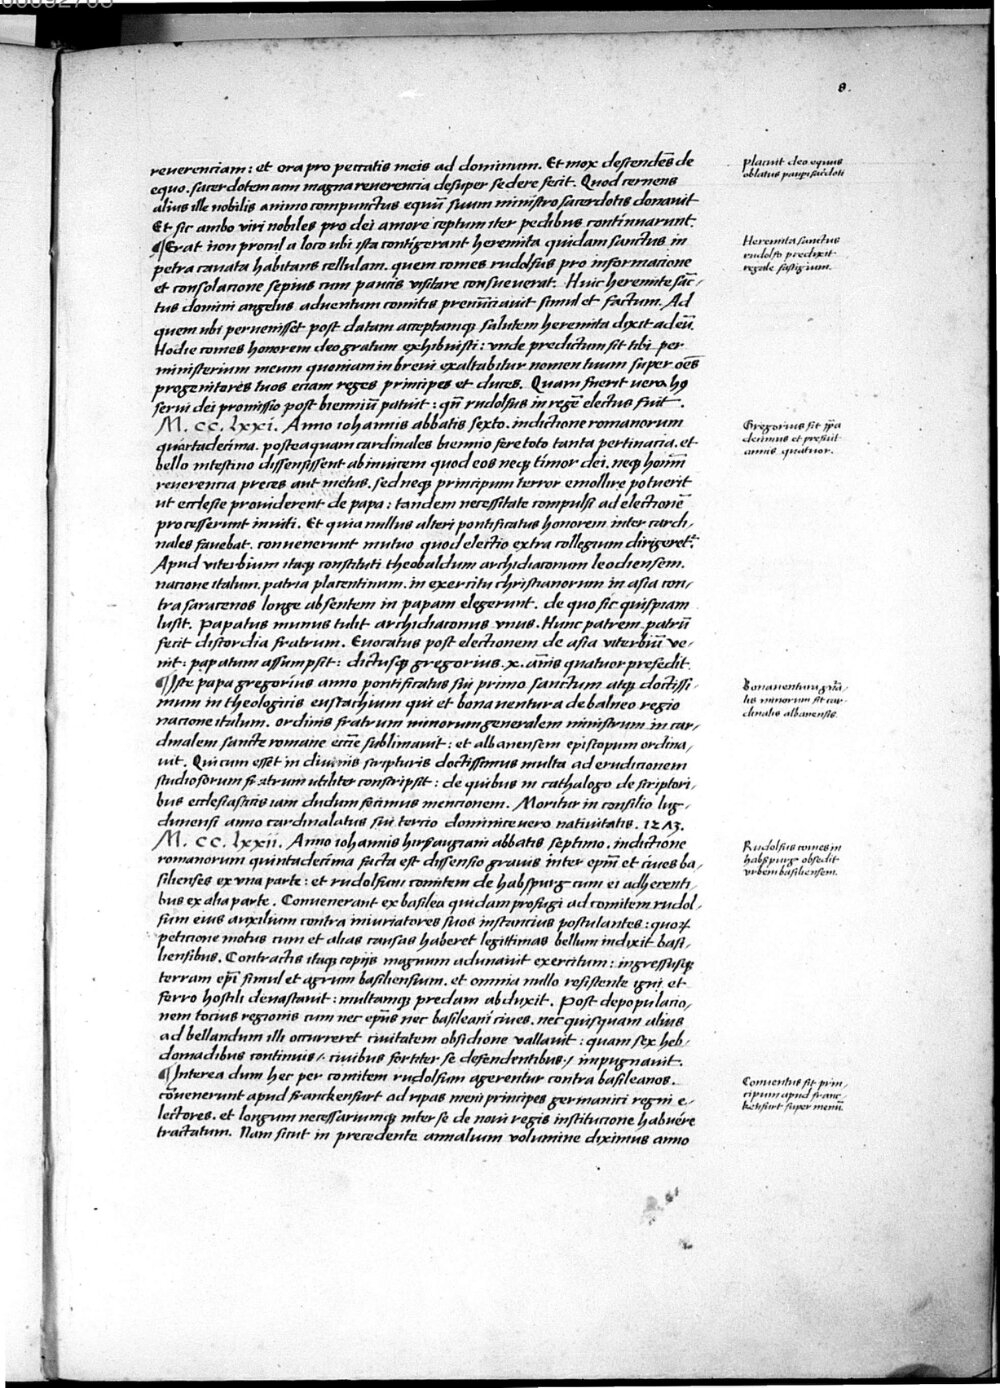 8.
reuerenciam: et ora pro peccatis meis ad dominum. Et mox descendēs de
equo. sacerdotem cum magna reuerencia desuper sedere fecit. Quod cernens
alius ille nobilis animo compunctus equū suum ministro sacerdotis donauit
Et sic ambo viri nobiles pro dei amore ceptum iter pedibus continuarunt.
¶Erat non procul a loco ubi ista contigerant heremita quidam sanctus in
petra cauata habitans cellulam. quem comes rudolfus pro informacione
et consolacione sepius cum paucis visitare consueuerat. Huic heremite sāc-
tus domini angelus aduentum comitis prenūciauit simul et factum. Ad
quem ubi peruenisset post datam acceptamqꝫ salutem heremita dixit ad eū.
Hodie comes honorem deo gratum exhibuisti: vnde predictum sit tibi per
ministerium meum quoniam in breui exaltabitur nomen tuum super oēs
progenitores tuos eciam reges principes et duces. Quam fuerit vera hꝫ
serui dei promissio post bienniū patuit: qn̄ rudolfus in regē electus fuit.
M. cc. lxxi. Anno iohannis abbatis sexto. indictione romanorum
quartadecima. posteaquam cardinales biennio fere toto tanta pertinacia. et
bello intestino dissensissent ab inuicem quod eos neqꝫ timor dei. neqꝫ homīn
reuerencia preces aut metus. sed neqꝫ principum terror emollire potuerit
ut ecclesie prouiderent de papa: tandem necessitate compulsi ad electionē
processerunt inuiti. Et quia nullus alteri pontificatus honorem inter cardi-
nales fauebat. conuenerunt mutuo quod electio extra collegium dirigeret̄.
Apud viterbium itaqꝫ constituti theobaldum archidiaconum leodiensem.
nacione italum. patria placentinum. in exercitu christianorum in asia con-
tra saracenos longe absentem in papam elegerunt. de quo sic quispiam
lusit. Papatus munus tulit archidiaconus vnus. Hunc patrem patrū
fecit discordia fratrum. Euocatus post electionem de asia viterbiū ve-
nit: papatum assumpsit: dictusqꝫ gregorius .x. annis quatuor presedit.
¶Iste papa gregorius anno pontificatus sui primo sanctum atqꝫ doctissi-
mum in theologicis eustachium qui et bonauentura de balneo regio
nacione italum. ordinis fratrum minorum generalem ministrum in car-
dinalem sancte romane ecc̄ie sublimauit: et albanensem episcopum ordina-
uit. Qui cum esset in diuinis scripturis doctissimus multa ad erudicionem
studiosorum fratrum utiliter conscripsit: de quibus in cathalogo de scriptori-
bus ecclesiasticis iam dudum fecimus mencionem. Moritur in consilio lug-
dunensi anno cardinalatus sui tercio dominice vero natiuitatis. 1273.
M. cc. lxxii. Anno iohannis hirsaugiani abbatis septimo. indictione
romanorum quintadecima facta est dissensio grauis inter ep̄m et ciues ba-
silienses ex vna parte: et rudolfum comitem de habspurg cum ei adherenti-
bus ex alia parte. Conuenerant ex basilea quidam profugi ad comitem rudol-
fum eius auxilium contra iniuriatores suos instancius postulantes: quoꝝ
peticione motus cum et alias causas haberet legittimas bellum indixit basi-
liensibus. Contractis itaqꝫ copijs magnum adunauit exercitum: ingressusqꝫ
terram ep̄i simul et agrum basiliensium. et omnia nullo resistente igni et
ferro hostili deuastauit: multamqꝫ predam abduxit. Post depopulacio-
nem tocius regionis cum nec ep̄us nec basileani ciues. nec quisquam alius
ad bellandum illi occurreret ciuitatem obsidione vallauit: quam sex heb-
domadibus continuis /. ciuibus fortiter se defendentibus ./ impugnauit.
¶Interea dum hec per comitem rudolfum agerentur contra basileanos.
cōuenerunt apud franckenfurt ad ripas meni principes germanici regni e-
lectores. et longum necessariumqꝫ inter se de noui regis institucione habuére
tractatum. Nam sicut in precedente annalium volumine diximus anno
Placuit deo equus
oblatus paupi sac̄doti
Heremita sanctus
rudolfo predixit
regale fastigium.
Gregorius fit papa
decimus et presuit
annis quatuor.
Bonauentura gn̄a-
lis minorum fit car-
dinalis albanensis.
Rudolfus comes in
habspurg obsedit
vrbem basiliensem.
Conuentus fit prin-
cipum apud franc-
kenfurt super menū